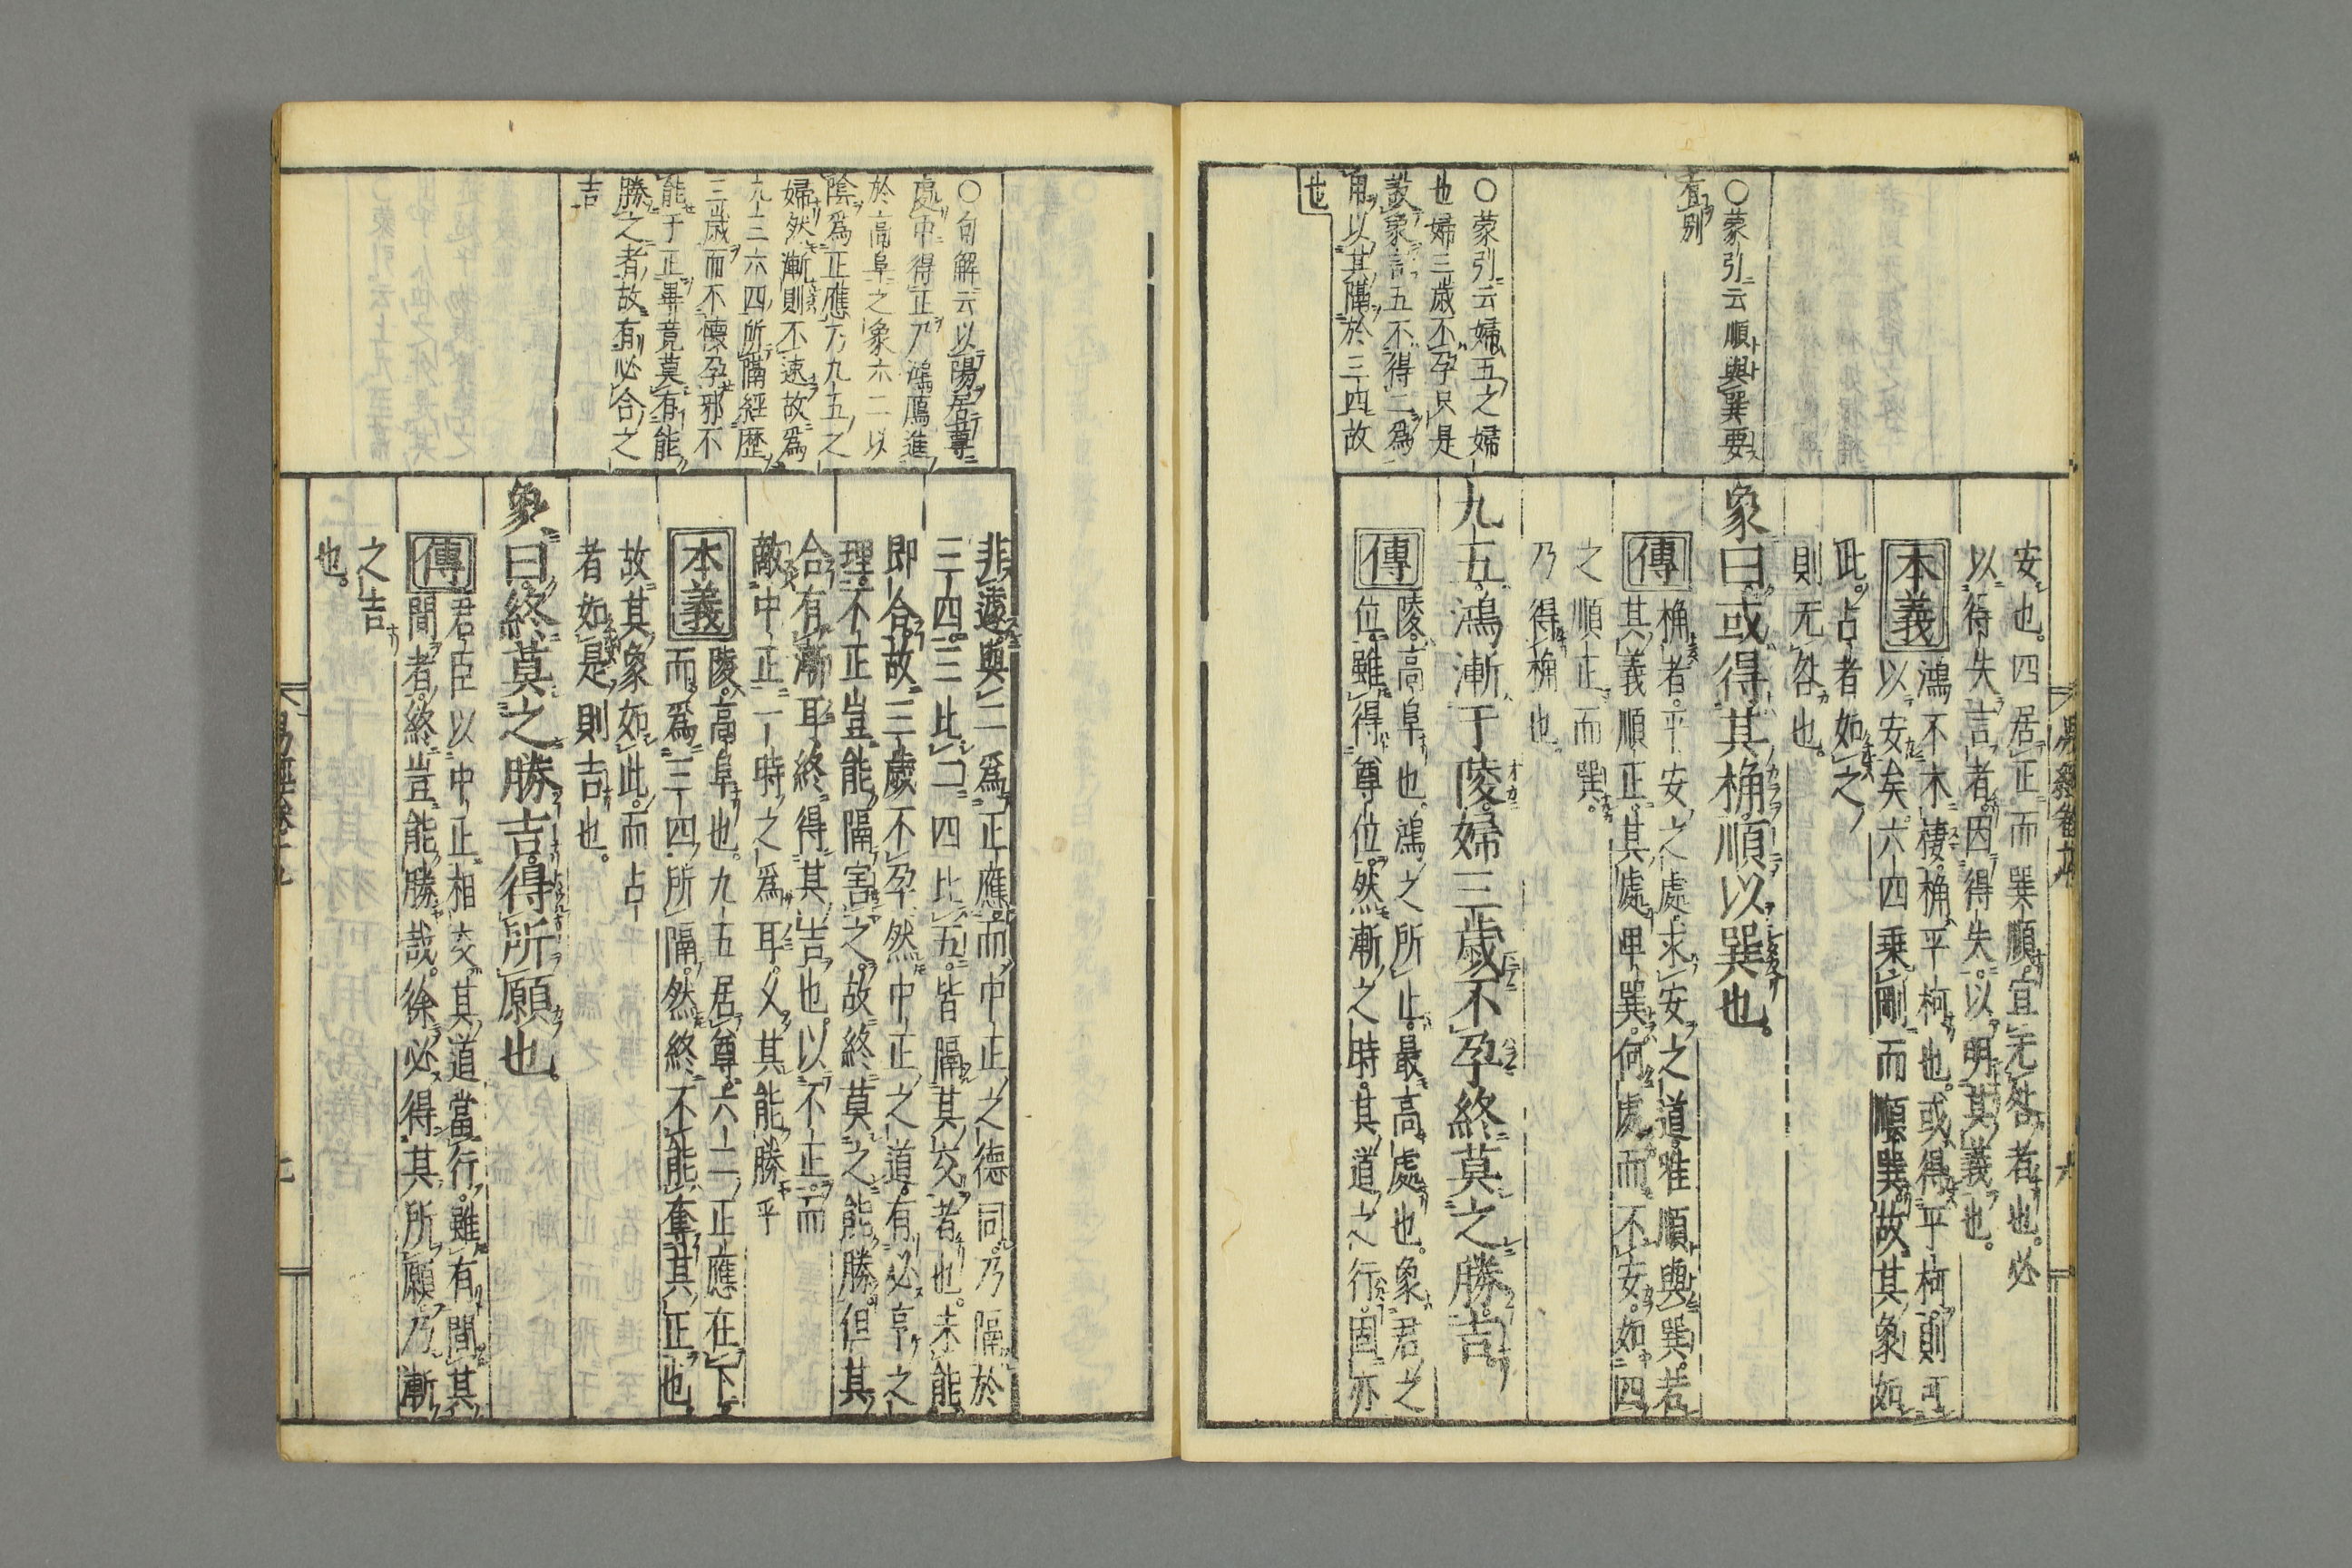 ○蒙引云順與巽要
有別
○蒙引云婦五之婦
也婦三歲不孕只是
設象言五不得二爲
用以其隔於三四故
也
安也。四居正而巽順。宜无咎者也。必
以得失言者。因得失。以明其義也。
本義
鴻不木棲。桷平柯也。或得平柯。則可
以安矣。六四乗剛而順巽。故其象如
此。占者如之
則无咎也。
象曰。或得其桷。順以巽也。
傳
桷者。平安之處。求安之道。唯順與巽。若
其義順正。其處卑巽。何處而不安。如四
之順正而巽。
乃得桷也。
九五。鴻漸于陵。婦三歲不孕。終莫之勝。吉。
傳
陵。高阜也。鴻之所止。最高處也。象君之
位。雖得尊位。然漸之時。其道之行。固亦
○句解云以陽居尊
處中得正乃鴻鴈進
於高阜之象六二以
陰爲正應乃九五之
婦然漸則不速故爲
九三六四所隔經歴
三歲而不懷孕邪不
能于正畢竟莫有能
勝之者故有必合之
吉
非遽。與二爲正應。而中正之德同。乃隔於
三四。三比二。四比五。皆隔其交者也。未能
即合。故三歲不孕。然中正之道。有必亨之
理。不正豈能隔害之。故終莫之能勝。但其
合有漸耳。終得其吉也。以不正。而
敵中正。一時之爲耳。乆其能勝乎
本義
陵。高阜也。九五居尊。六二正應在下。
而爲三四所隔。然終不能奪其正也。
故其象如此。而占
者如是則吉也。
象曰。終莫之勝吉。得所願也。
傳
君臣以中正相交。其道當行。雖有間其
間者。終豈能勝哉。徐必得其所願。乃漸
之吉
也。